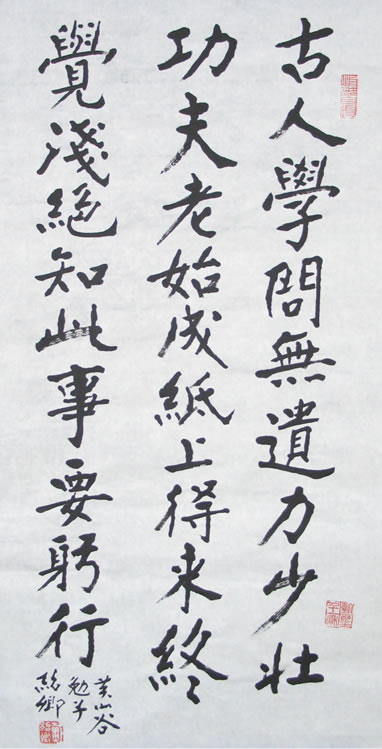 古人學問無遺力少壯
功夫老始成紙上得來終
覺淺絕知此事要躬行
黄山谷
勉子